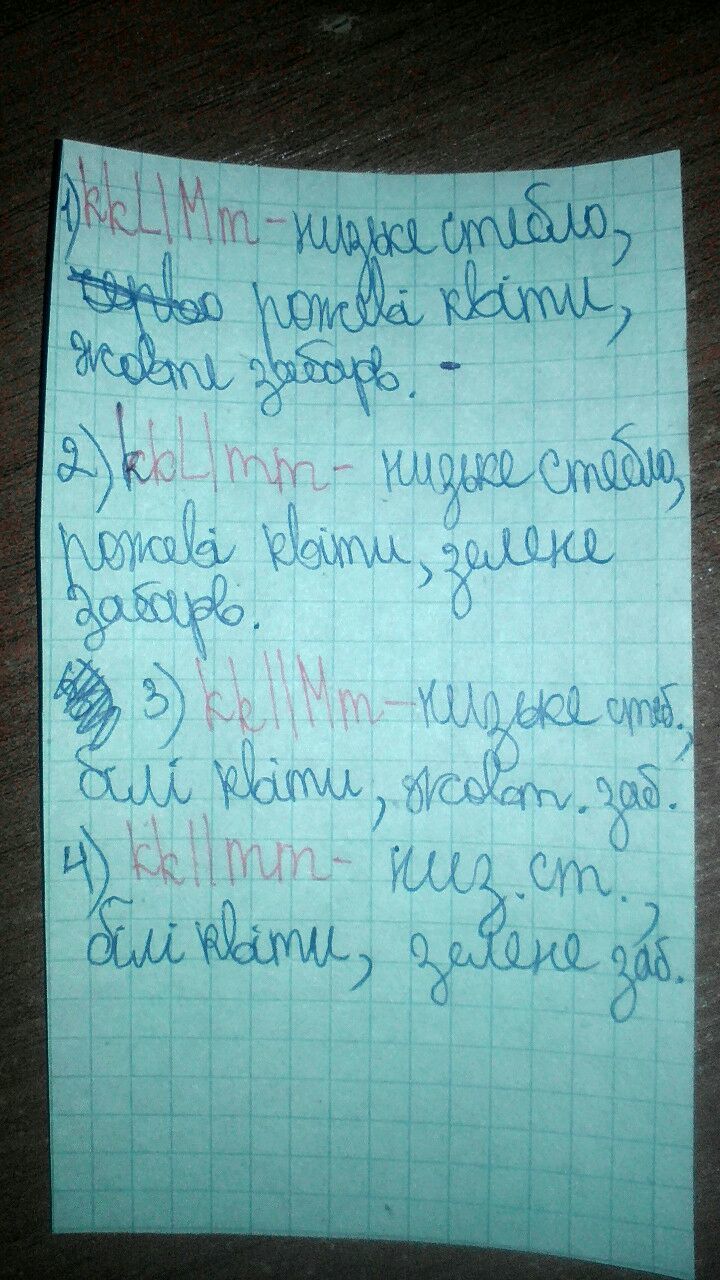 1) kkLlMm - низьке стебло,
рожеві квіти,
жовте забарв. -
2) kkLlmm - низьке стебло,
рожеві квіти, зелене
забарв.
3) kkllMm - низьке стеб.,
білі квіти, жовт. заб.
4) kkllmm - низ. ст.,
білі квіти, зелене заб.